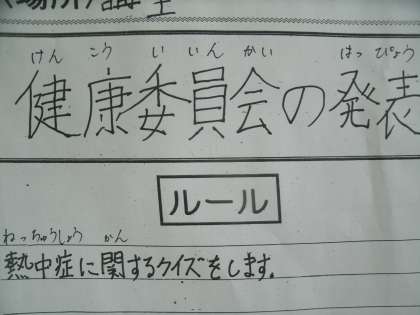 けんこういいんかい はっぴょう
健康委員会の発表
ルール
ねっちゅうしょう かん
熱中症に関するクイズをします。